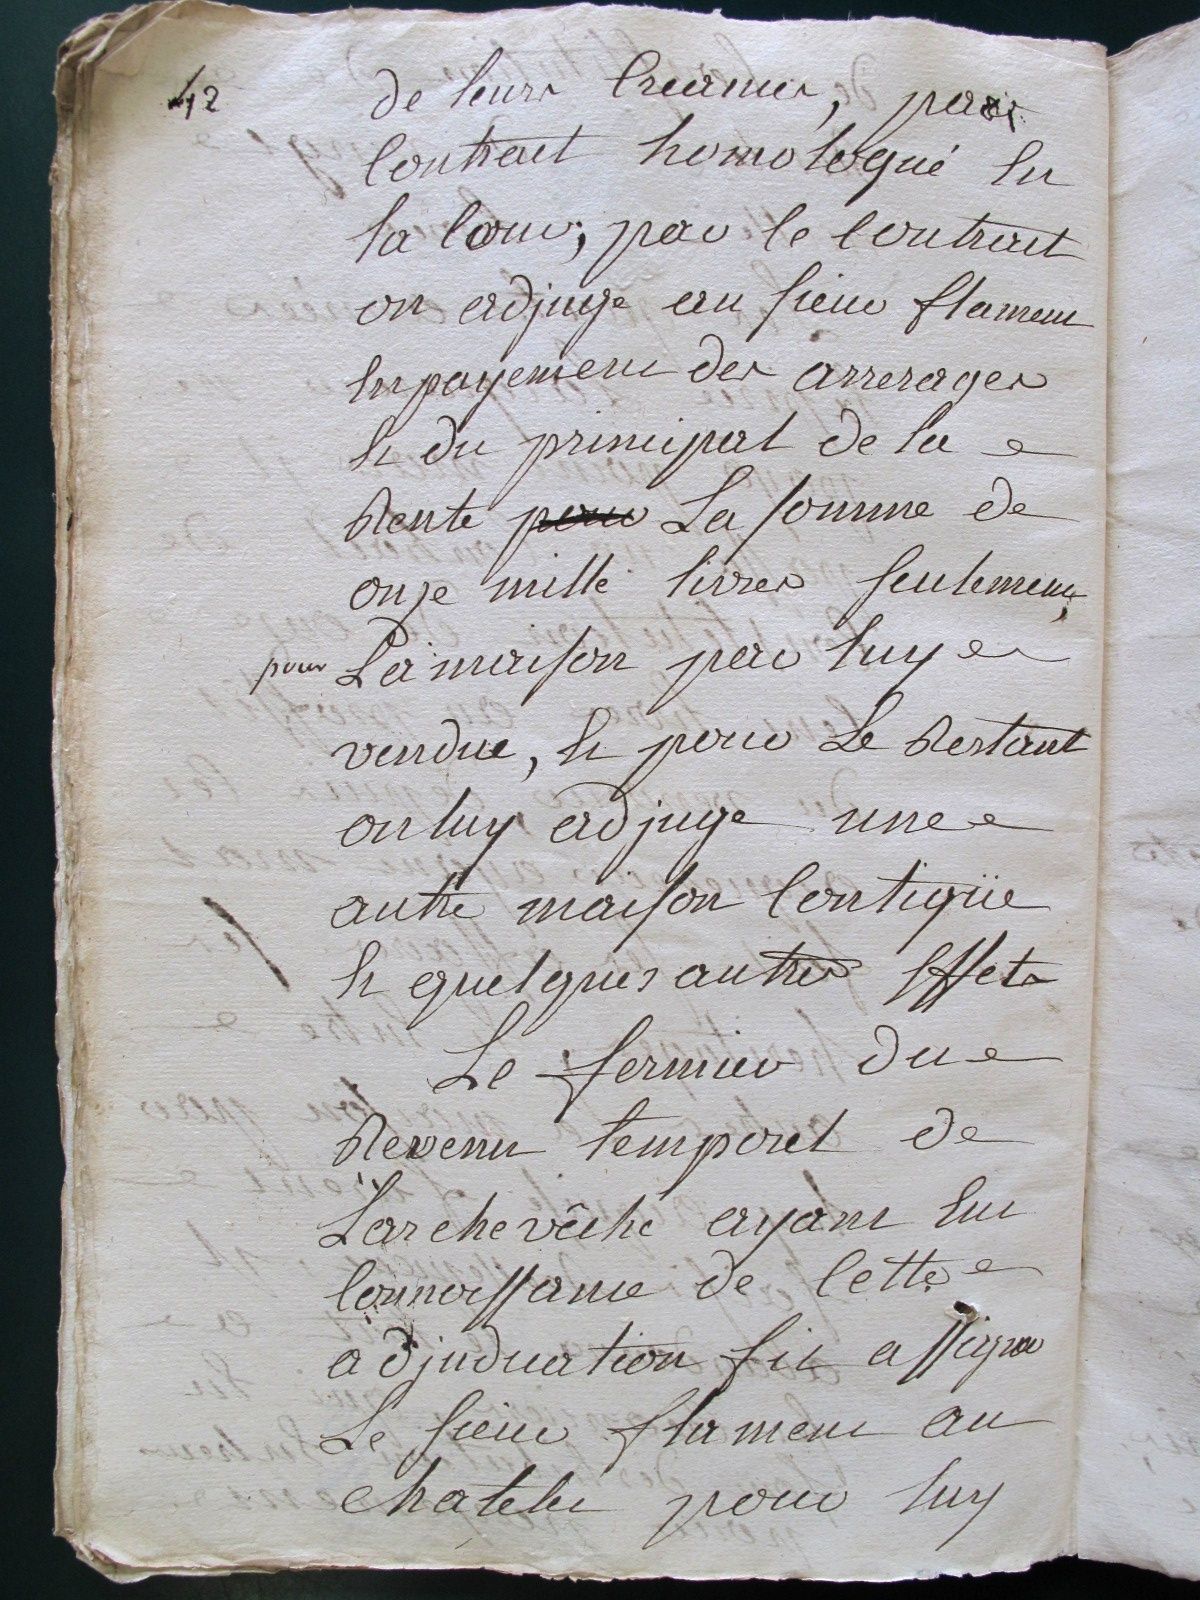 42
de leurs Creances, par
Contract homologué En
la Cour; par le Contract
on adjuge au sieur flament
En payement des arrerages
Et du principal de la
Rente pour La somme de
onze mille livres seulement,
pour La maison par luy
vendue, Et pour Le Restant
on luy adjuge une
autre maison Contigüe
Et quelques autres Effets
Le fermier du
Revenu temporel de
L'archevêché ayant Eu
Connoissance de Cette
adjudication fit assigner
Le sieur flament au
chatelet pour luy